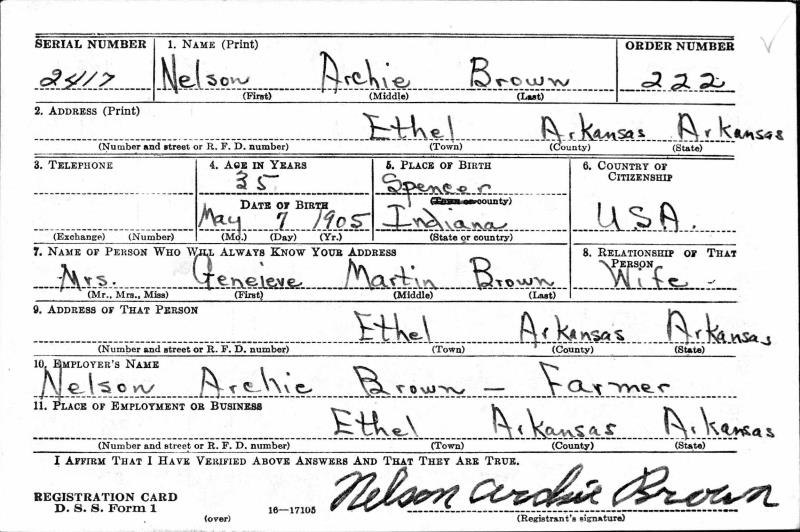 SERIAL NUMBER 1. NAME (Print) ORDER NUMBER
2417 Nelson Archie Brown 222
(First) (Middle) (Last)
2. ADDRESS (Print)
Ethel Arkansas Arkansas
(Number and street or R. F. D. number) (Town) (County) (State)
3. TELEPHONE 4. AGE IN YEARS 5. PLACE OF BIRTH 6. COUNTRY OF CITIZENSHIP
35 Spencer
DATE OF BIRTH (Town or county)
May 7 1905 Indiana USA.
(Exchange) (Number) (Mo.) (Day) (Yr.) (State or country)
7. NAME OF PERSON WHO WILL ALWAYS KNOW YOUR ADDRESS 8. RELATIONSHIP OF THAT PERSON
Mrs. Genelève Martin Brown Wife -
(Mr., Mrs., Miss) (First) (Middle) (Last)
9. ADDRESS OF THAT PERSON
Ethel Arkansas Arkansas
(Number and street or R. F. D. number) (Town) (County) (State)
10. EMPLOYER'S NAME
Nelson Archie Brown - Farmer
11. PLACE OF EMPLOYMENT OR BUSINESS
Ethel Arkansas Arkansas
(Number and street or R. F. D. number) (Town) (County) (State)
I AFFIRM THAT I HAVE VERIFIED ABOVE ANSWERS AND THAT THEY ARE TRUE.
REGISTRATION CARD Nelson Archie Brown
D. S. S. Form 1 16—17105
(over) (Registrant's signature)